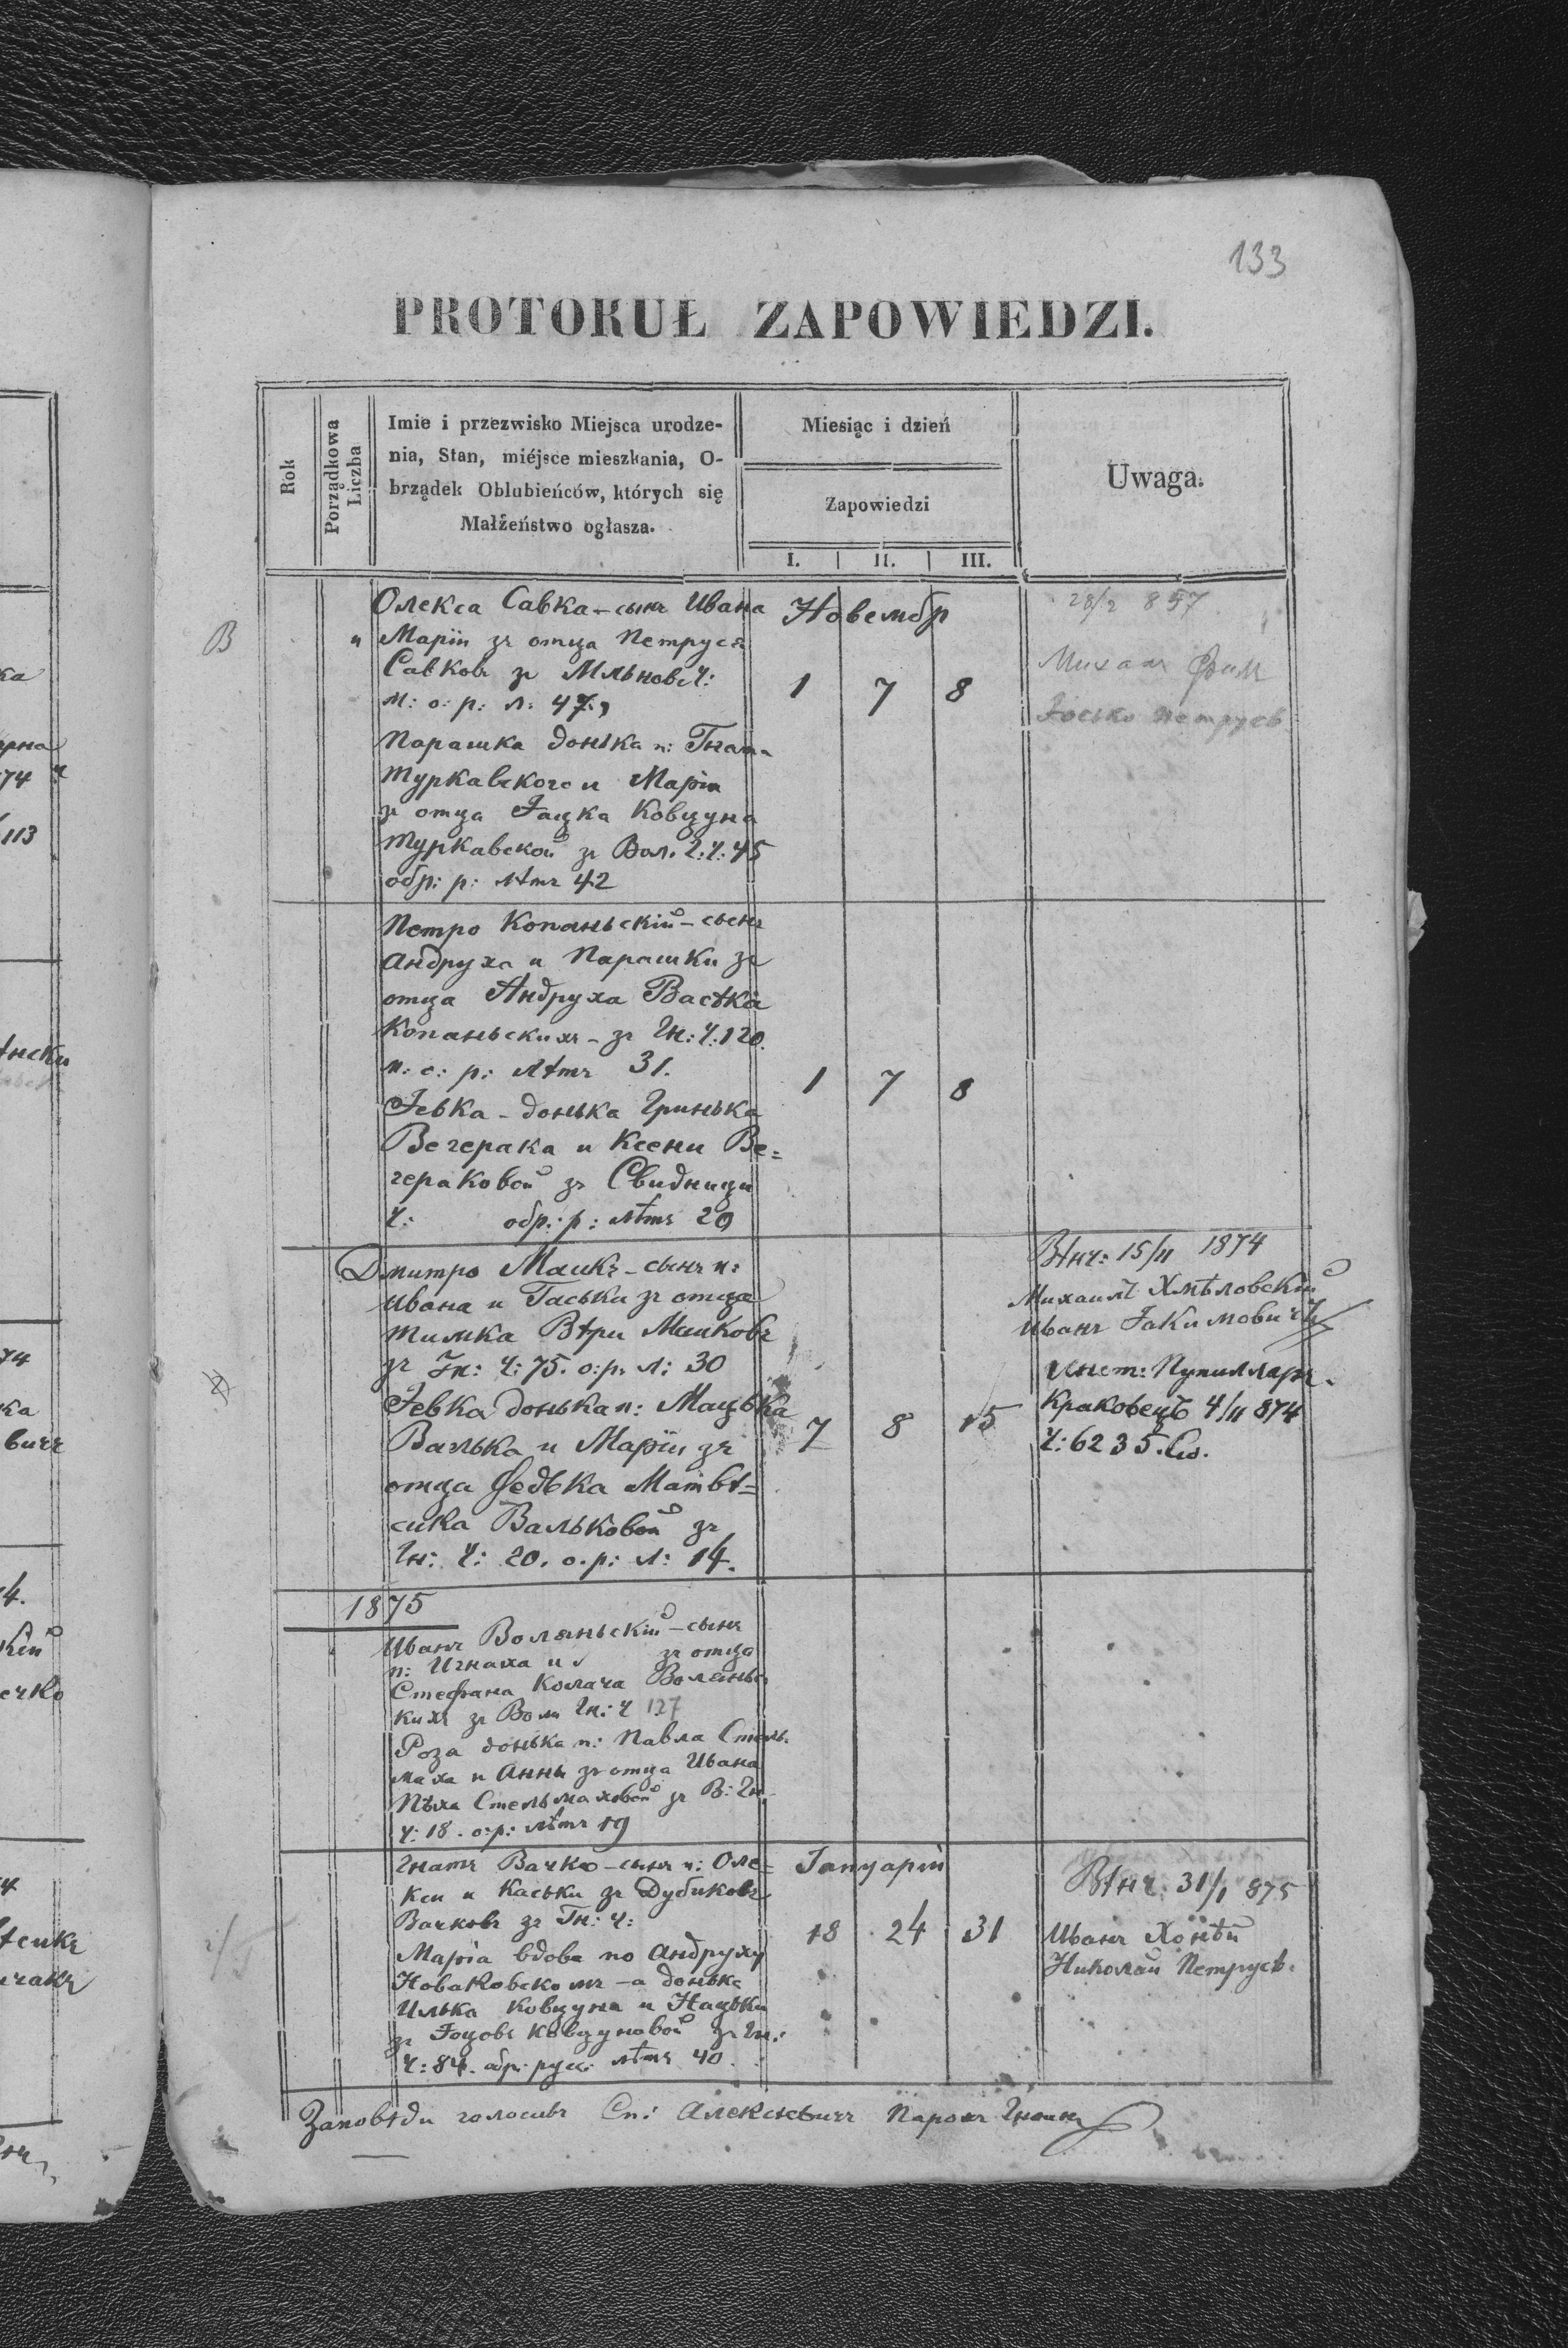 133
PROTOKUŁ ZAPOWIEDZI.
Rok
Porządkowa Liczba
Imie i przezwisko Miejsca urodze-
nia, Stan, miéjsce mieszkania, O-
brządek Oblubieńców, których się
Małżeństwo ogłasza.
Miesiąc i dzień
Zapowiedzi
I. II. III.
Uwaga.
В
Олекса Савка – сынъ Ивана
и Маріи зъ отца Петруся
Савковъ зъ
м: о: р: л: 47,
Парашка донька п:
Туркавского и Маріи
зъ отца Яцка Ковцуна
Туркавской зъ Вол. Г: Ч: 45
обр: р: лѣтъ 42
Новембр
1 7 8
28/2 857
Михаил
Петрусѣв
Петро Копаньскій – сынъ
Андруха и Парашки зъ
отца Андруха Васька
Копаньскихъ – зъ Гн: Ч: 120.
п: о: р: лѣтъ 31.
Яевка – донька Гринька
Вечерака и Ксени Ве=
чераковой зъ Свидници
Ч: обр: р: лѣтъ 20
1 7 8
Дмитро Машкъ – сынъ п:
Ивана и Гаськи зъ отца
Тимка Вѣтри Машковъ
зъ Гн: Ч: 75. о: р. л: 30
Яевка донька п: Мацька
Валька и Маріи зъ
отца Федька Матвѣ=
сика Вальковой зъ
Гн: Ч: 20. о. р: л: 14.
7 8 15
Вѣнч: 15/11 1874
Михаилъ Хмѣловскій
Иванъ Якимовичъ
Инст: Пупилларн.
Краковецъ 4/11 874
Ч: 6235.
1875
Иванъ Воляньскій – сынъ
п: Игнаха и зъ отца
Стефана Колача Воляньс
кихъ зъ Воли Гн: Ч 127
Роза донька п: Павла Стель
маха и Анны зъ отца Ивана
Пѣха Стельмаховой зъ В: Гн.
Ч: 18. о: р: лѣтъ 19
Гнатъ Вачко – сынъ п: Оле=
кси и Каськи зъ Дубиковъ
Вачковъ зъ Гн: Ч:
Марія вдова по Андруху
Новаковскомъ – а донька
Илька Ковцуна и Нацьки
зъ Яцовъ Ковцуновой зъ Гн:
Ч: 84. обр: руск: лѣтъ 40.
Януарій
18 24 31
Вѣнч: 31/1 875
Иванъ
Николай Петрусѣв.
Заповѣди голосивъ Сп: Алексѣвичъ Парохъ